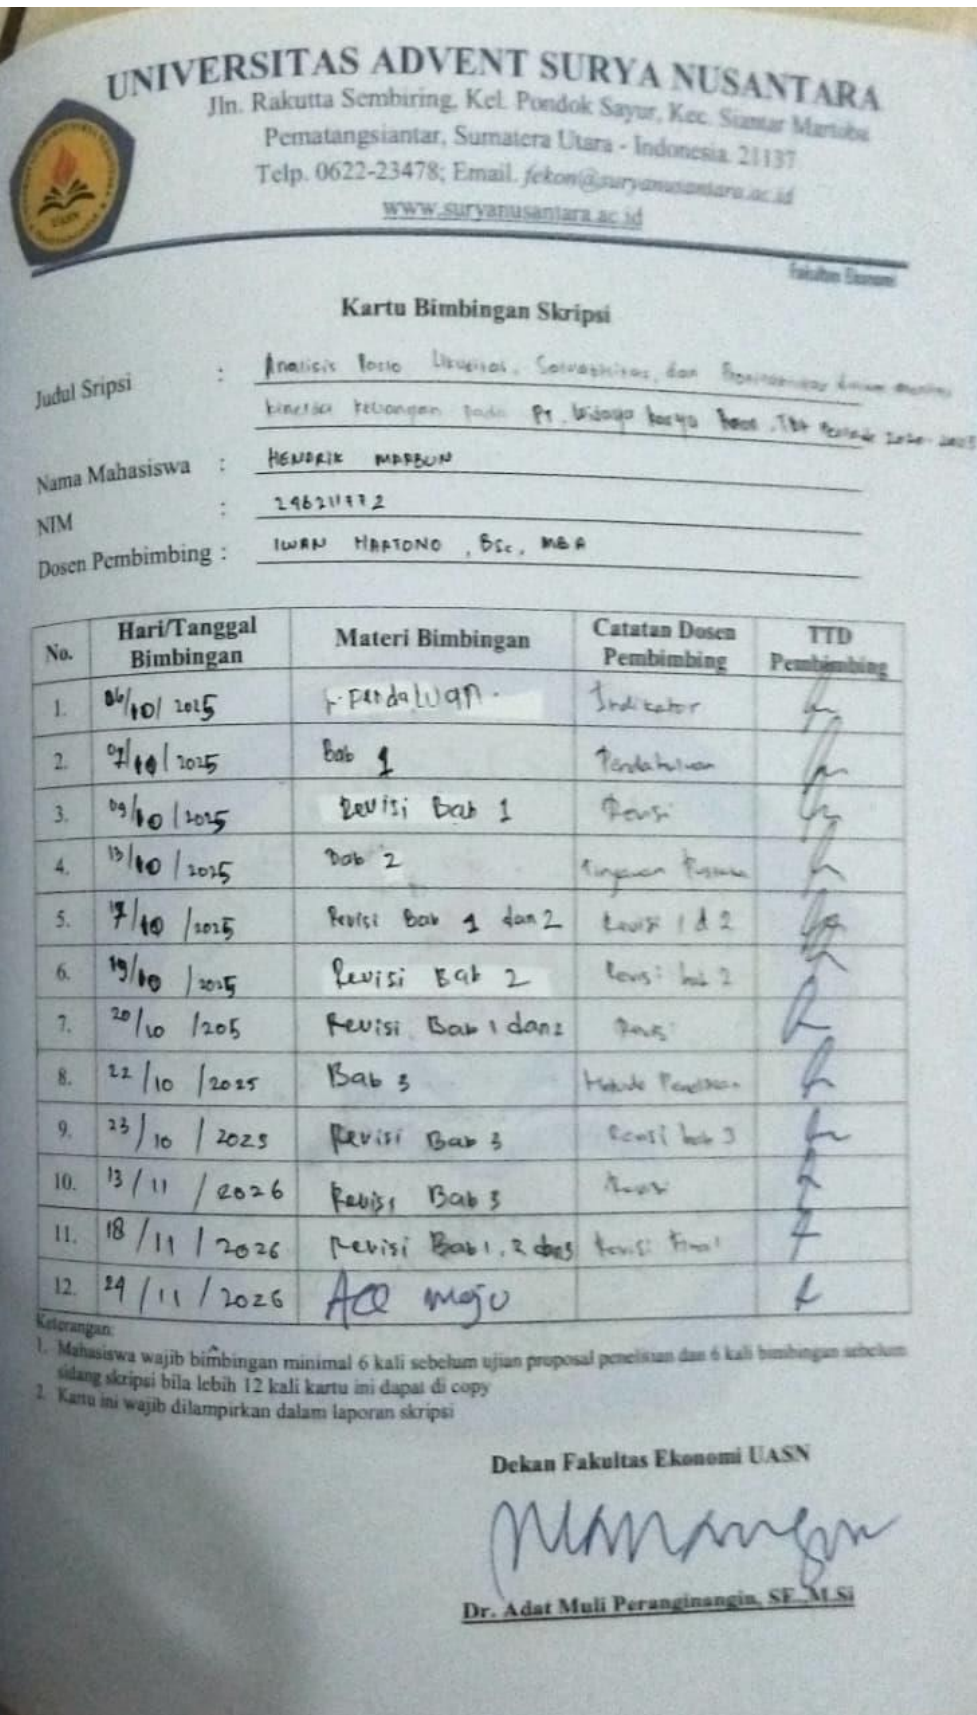 UNIVERSITAS ADVENT SURYA NUSANTARA
Jln. Rakutta Sembiring, Kel. Pondok Sayur, Kec. Siantar Martoba
Pematangsiantar, Sumatera Utara - Indonesia. 21137
Telp. 0622-23478; Email. fekon@suryanusantara.ac.id
www.suryanusantara.ac.id
UASN
Fakultas Ekonomi
Kartu Bimbingan Skripsi
Judul Sripsi : Analisis Rasio Likuiditas, Solvabilitas, dan Profitabilitas dalam
kinerja keuangan pada PT. Widaya karya Tbk Periode 2020-2023
Nama Mahasiswa : HENDRIK MARBUN
NIM :
Dosen Pembimbing : IWAN HARTONO, BSc, MBA
No. Hari/Tanggal Bimbingan Materi Bimbingan Catatan Dosen Pembimbing TTD Pembimbing
1. 06/10/2025 Indikator
2. 07/10/2025 Bab 1 Pendahuluan
3. 09/10/2025 Revisi Bab 1 Revisi
4. 13/10/2025 Bab 2 Tinjauan Pustaka
5. 17/10/2025 Revisi Bab 1 dan 2 Revisi 1 d 2
6. 19/10/2025 Revisi Bab 2 Revisi bab 2
7. 20/10/205 Revisi Bab 1 dan 2 Revisi
8. 22/10/2025 Bab 3 Metode Penelitian
9. 23/10/2025 Revisi Bab 3 Revisi bab 3
10. 13/11/2026 Revisi Bab 3 Revisi
11. 18/11/2026 Revisi Bab 1, 2 dan 3 Revisi Final
12. 24/11/2026 ACC maju
Keterangan:
1. Mahasiswa wajib bimbingan minimal 6 kali sebelum ujian proposal penelitian dan 6 kali bimbingan sebelum
sidang skripsi bila lebih 12 kali kartu ini dapat di copy
2. Kartu ini wajib dilampirkan dalam laporan skripsi
Dekan Fakultas Ekonomi UASN
Dr. Adat Muli Peranginangin, SE.,M.Si